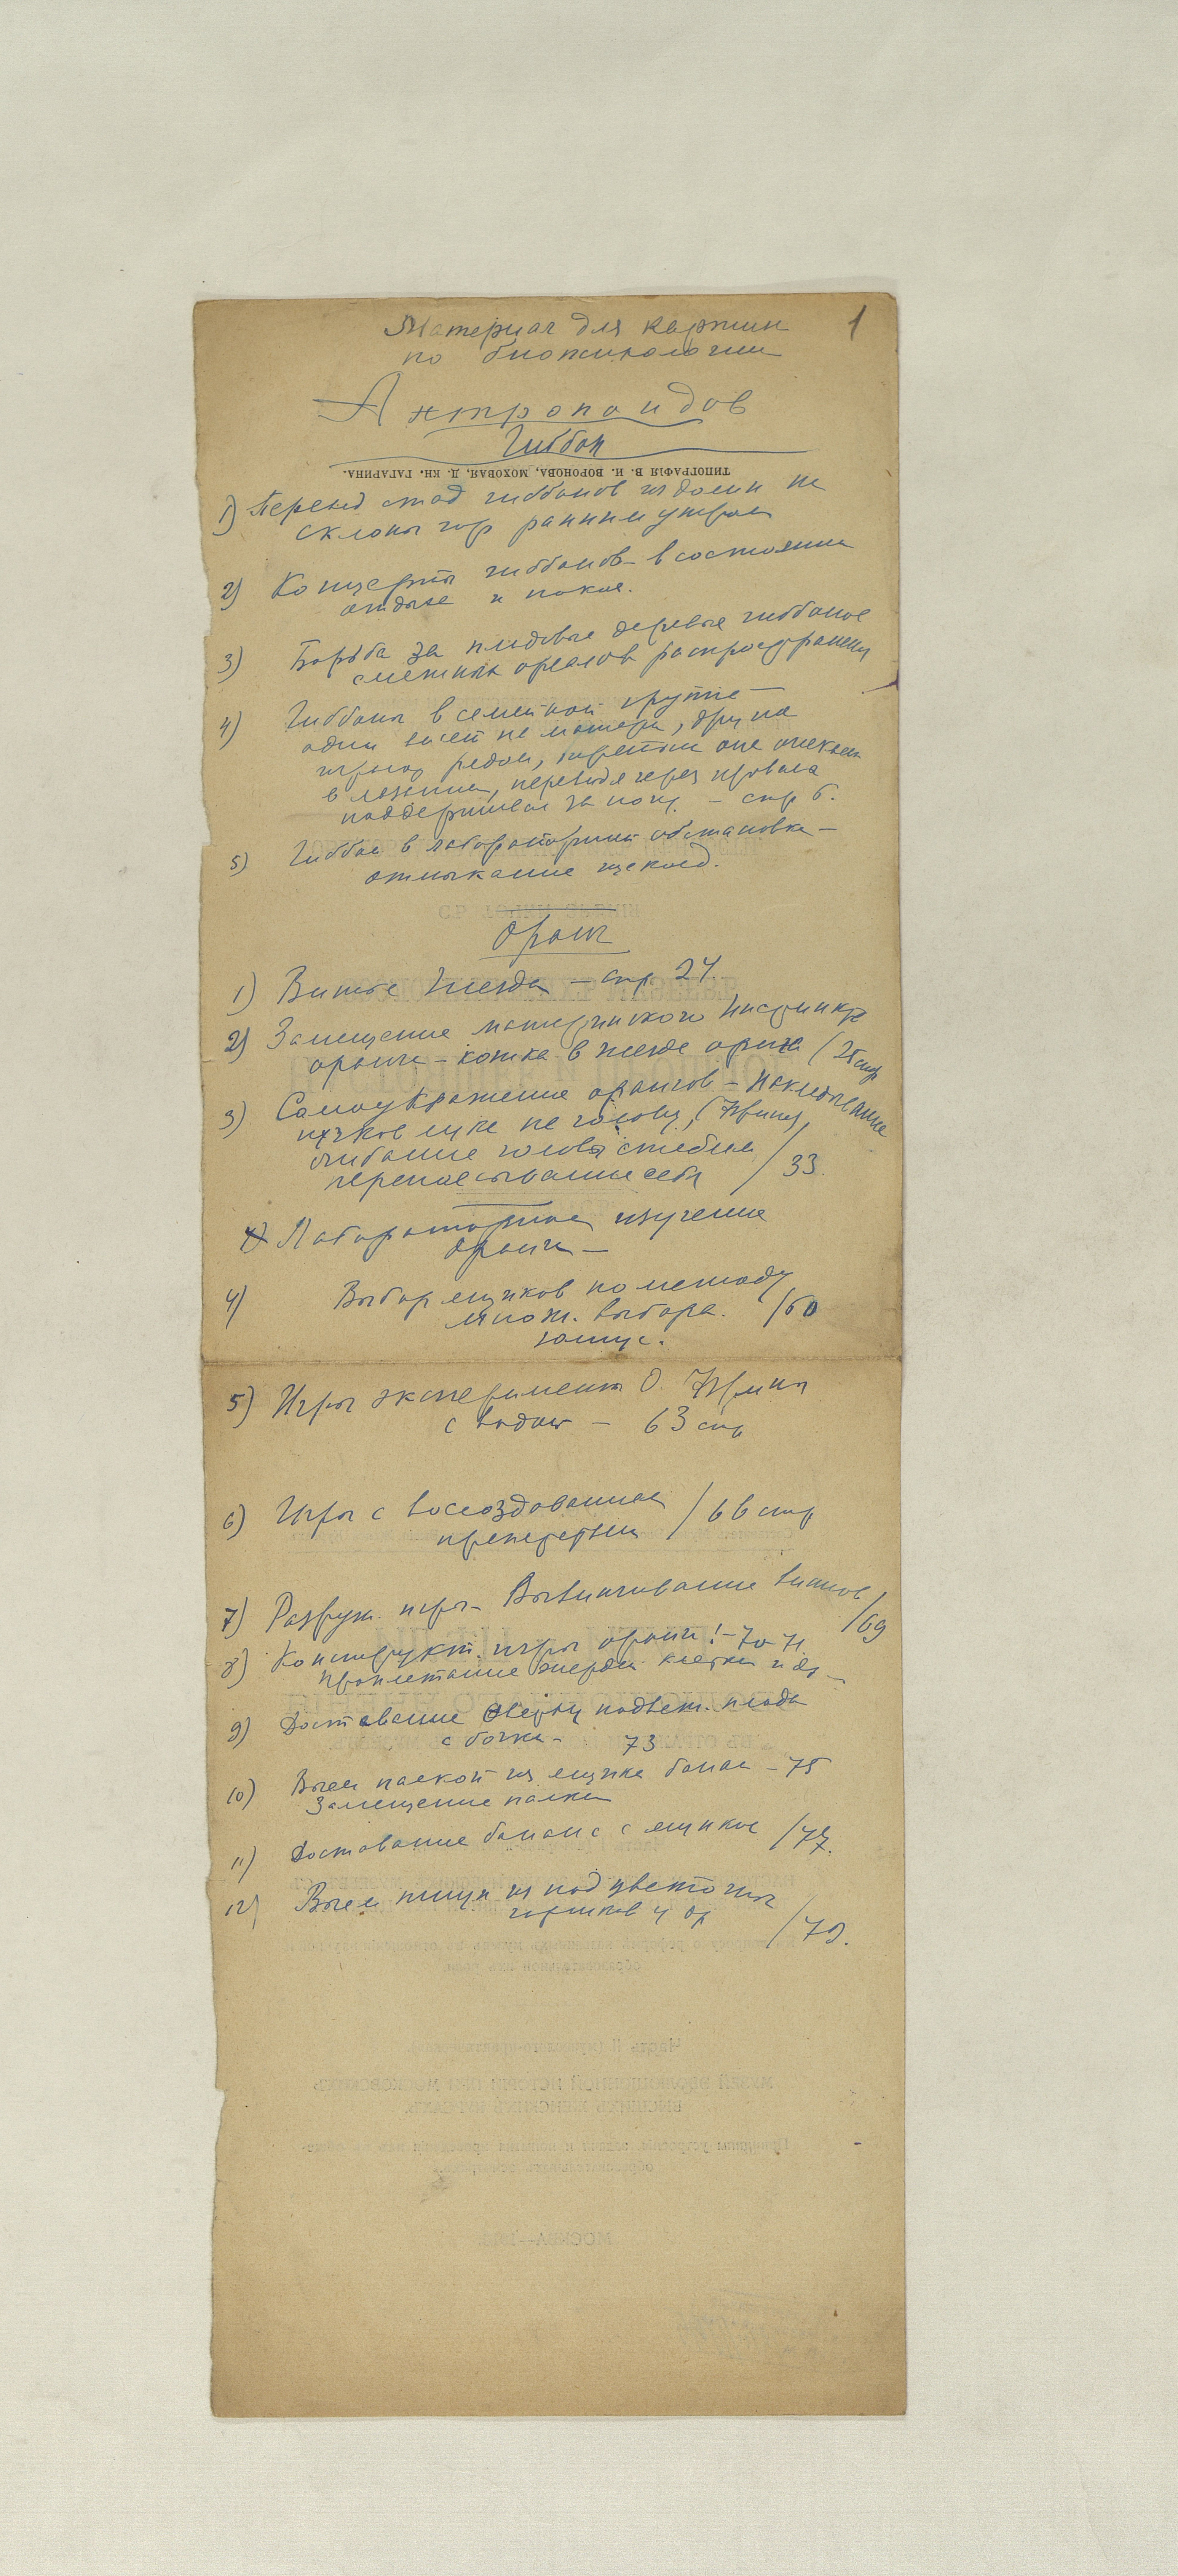 1
Материал для картин
по биопсихологии
Антропоидов
Гиббон
ТИПОГРАФІЯ В. И. ВОРОНОВА, МОХОВАЯ, Д. КН. ГАГАРИНА.
1) Переход стад гиббонов из долин на
склоны гор ранним утром
2) Концерты гиббонов в состоянии
отдыха и покоя.
3) Борьба за плодовые деревья гиббонов
смежных ареалов распространения
4) Гиббоны в семейной группе —
один висит на матери, друг на
играют рядом, третьим она
в лазании, переводя через
поддерживая за кону. — стр 6.
5) Гиббон в лабораторной обстановке —
отмыкание щеколд.
Оранг
1) Витье гнезда — стр 24.
2) Замещение материнского инстинкта
оранга — кошка в гнезде оранга (25 стр
3) Самоукрашение орангов — накладывание
пучков лука на голову,
стебля
перепоясывание себя / 33.
Лабораторное изучение
оранга —
4) Выбор ящиков по методу
множ. выбора. /60
5) Игры эксперимент О.
с водой — 63 стр
6) Игры с воссозданная
/ 66 стр
7) Разруш. игры — Вывинчивание винтов /69
8) Конструкт. игры оранга! — 70-71
Проплетание жердей клетки и др —
9) Доставание сверху подвеш. плода
с бочки — 73
10) Выем палкой из ящика банан — 75
Замещение палки
11) Доставание банана с ящиков /77.
12) Выем пищи из под цветочных
горшков и др /79.